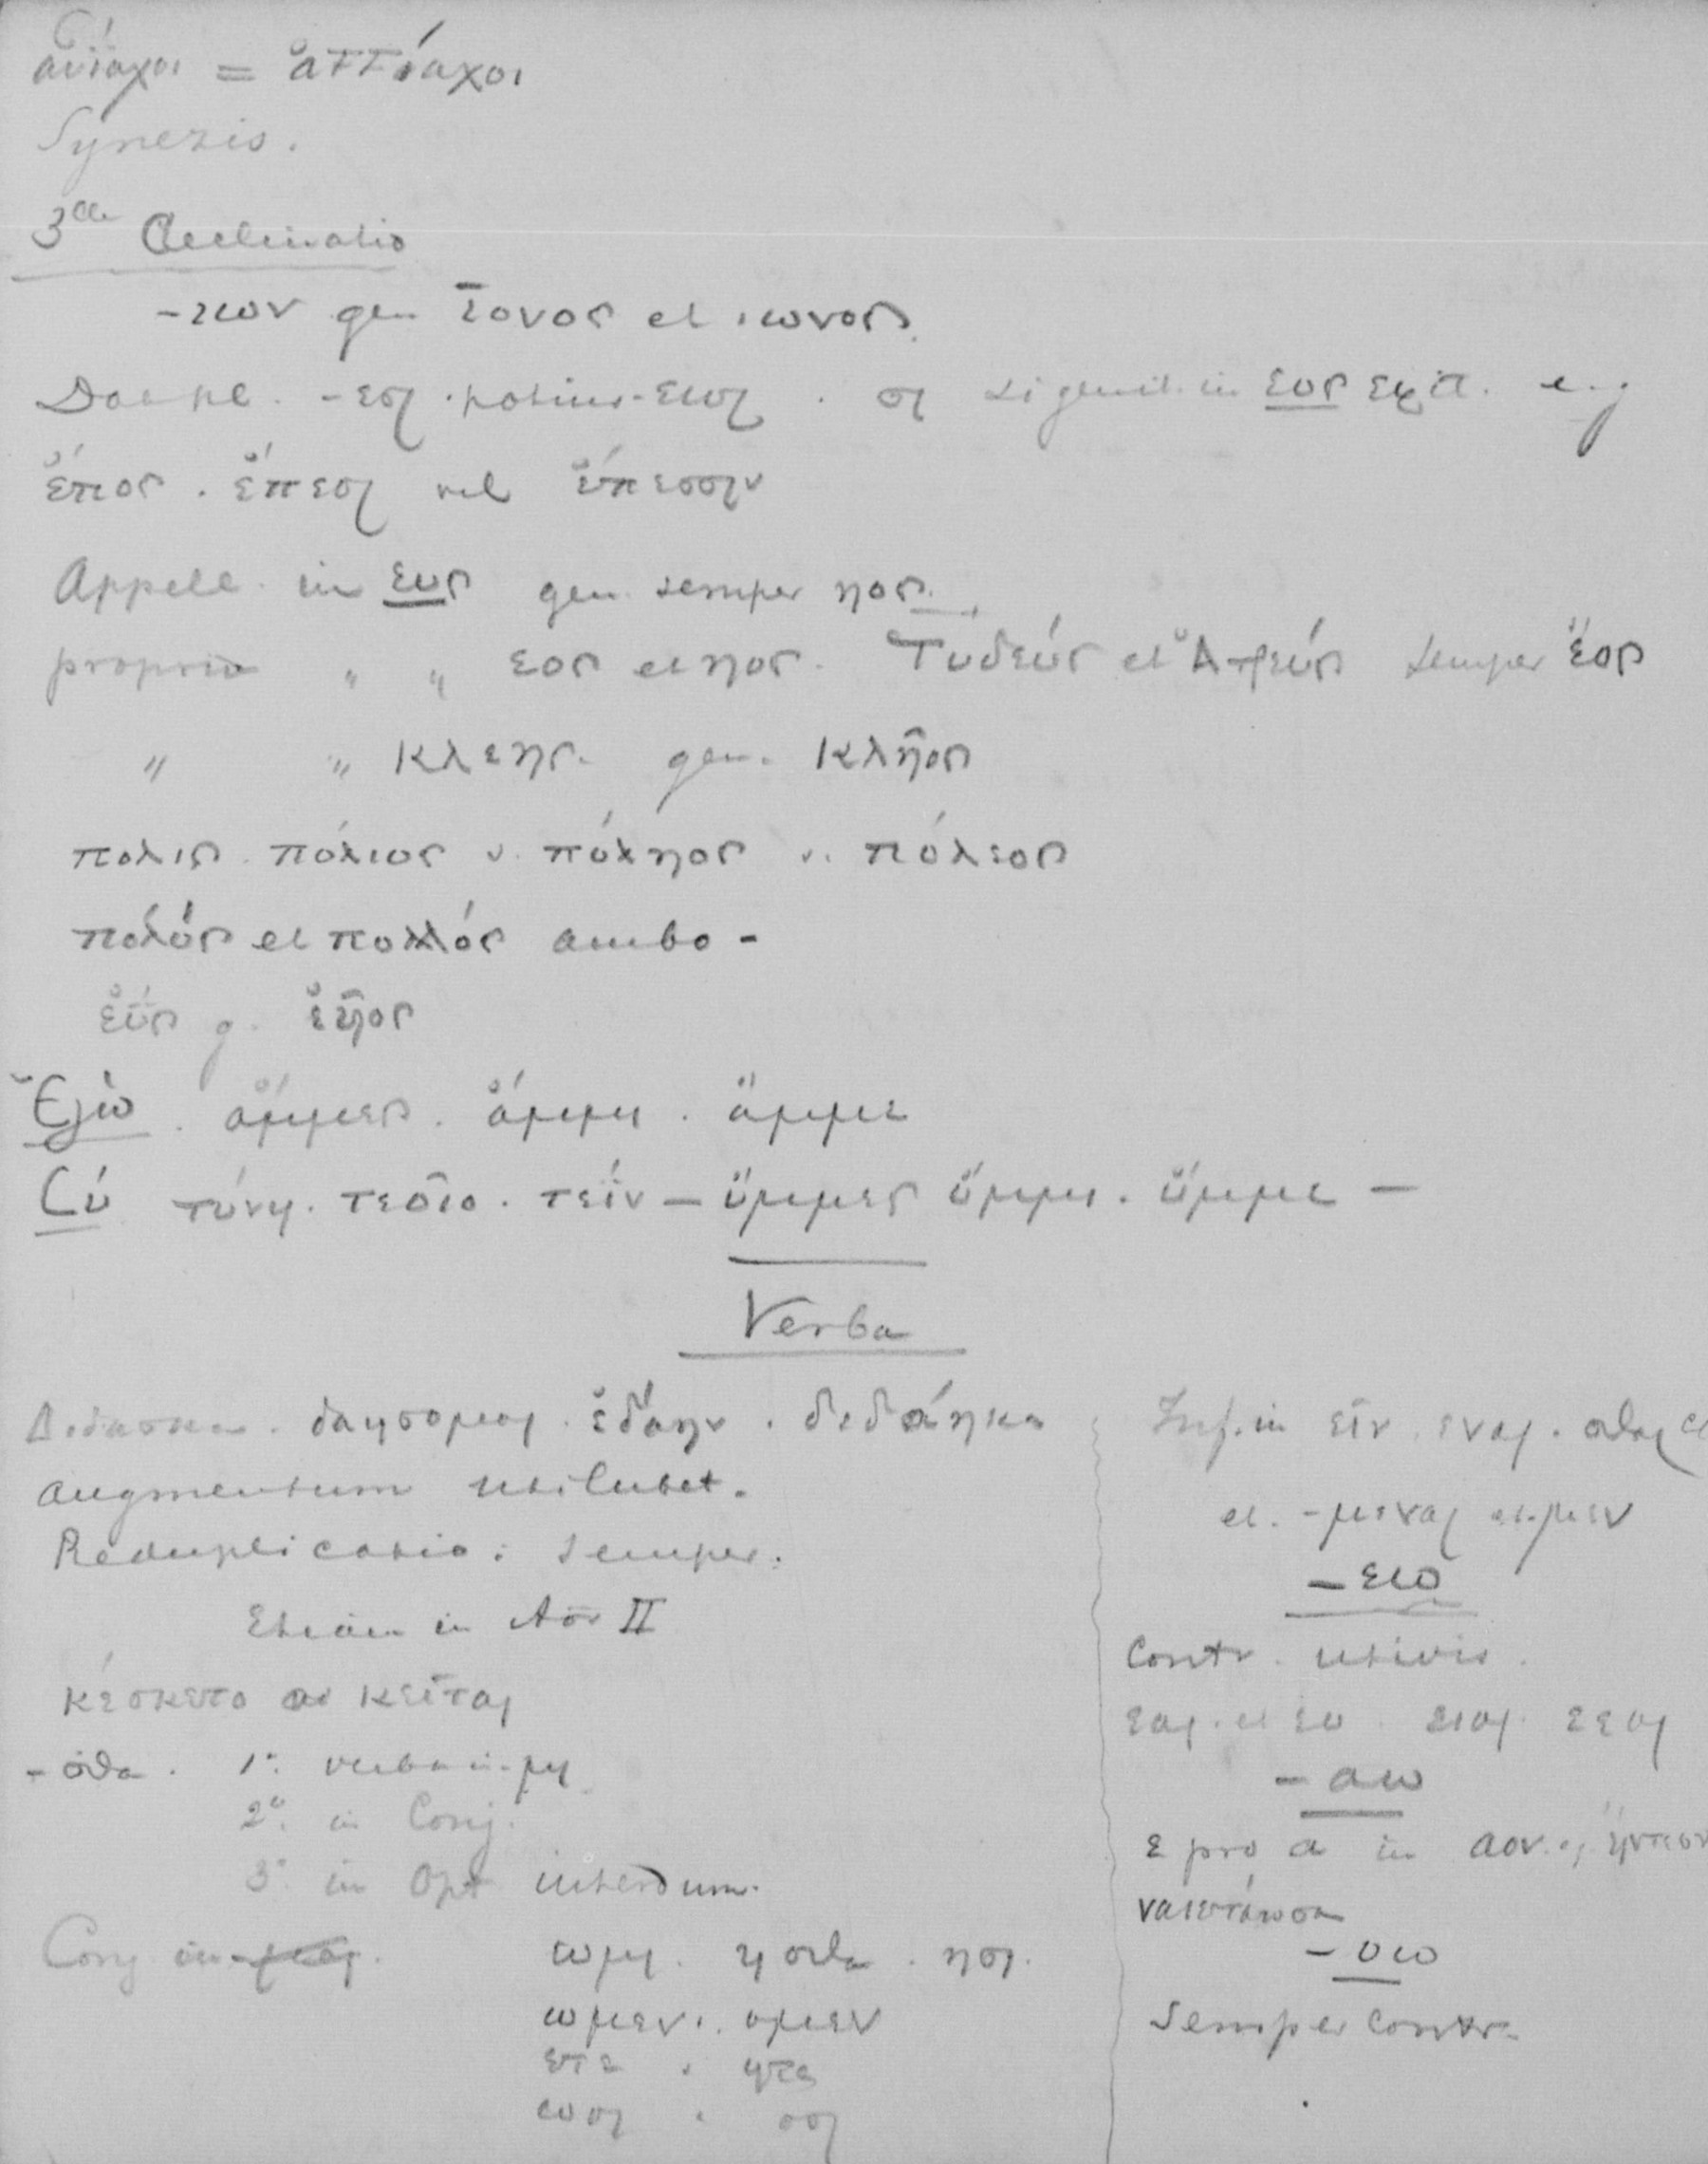 αὐίαχοι = ἀττίαχοι
Synezis.
3ª Declinatio
-ιων gen ῑονος et ιωνος.
Dat pl. -εσι potius -εσσι . σι si genit. in εος exit. e.g
ἔπος . ἔπεσι vel ἔπεσσιν
Appell. in ευς gen. semper ηος.
propria " " εος et ηος. Τυδεύς et Ἀτρεύς semper έος
" " κλεης. gen. κλῆος
πολις. πόλιος v. πόληος v. πόλεος
πολύς et πολλός ambo -
ἐΰς g. ἐῆος
Ἐγώ . ἄμμες . ἄμμι . ἄμμε
Σύ τύνη . τεοῖο . τεΐν — ὔμμες ὔμμι . ὔμμε —
Verba
Διδασκω . δαησομαι . ἐδάην . δεδάηκα
Augmentum uti lubet.
Reduplicatio : semper.
Etiam in Aor II
κέσκετο κεῖται
-σθα . 1º verba in -μι
2º in Conj.
3º in Opt interdum.
Conj in -μαι . ωμι . ησθα . ησι.
ωμεν . ομεν
ετε . ητε
ωσι . οσι
Inf. in ειν . εναι . σθαι
et. -μεναι et -μεν
-εω
Contr. utivis.
εαι . et εο . ειαι . εεαι
-αω
ε pro α in
ναιετάωσα
-οω
Semper contr.